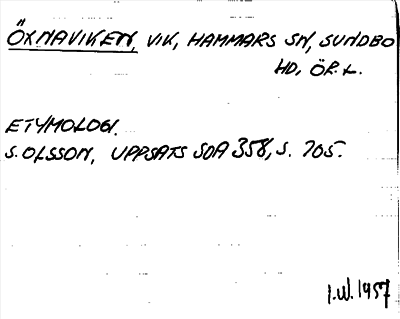 ÖXNAVIKEN, VIK, HAMMARS SN, SUNDBO
HD, ÖR. L.
ETYMOLOGI.
S. OLSSON, UPPSATS SOA 358, S. 105.
I.W. 1957